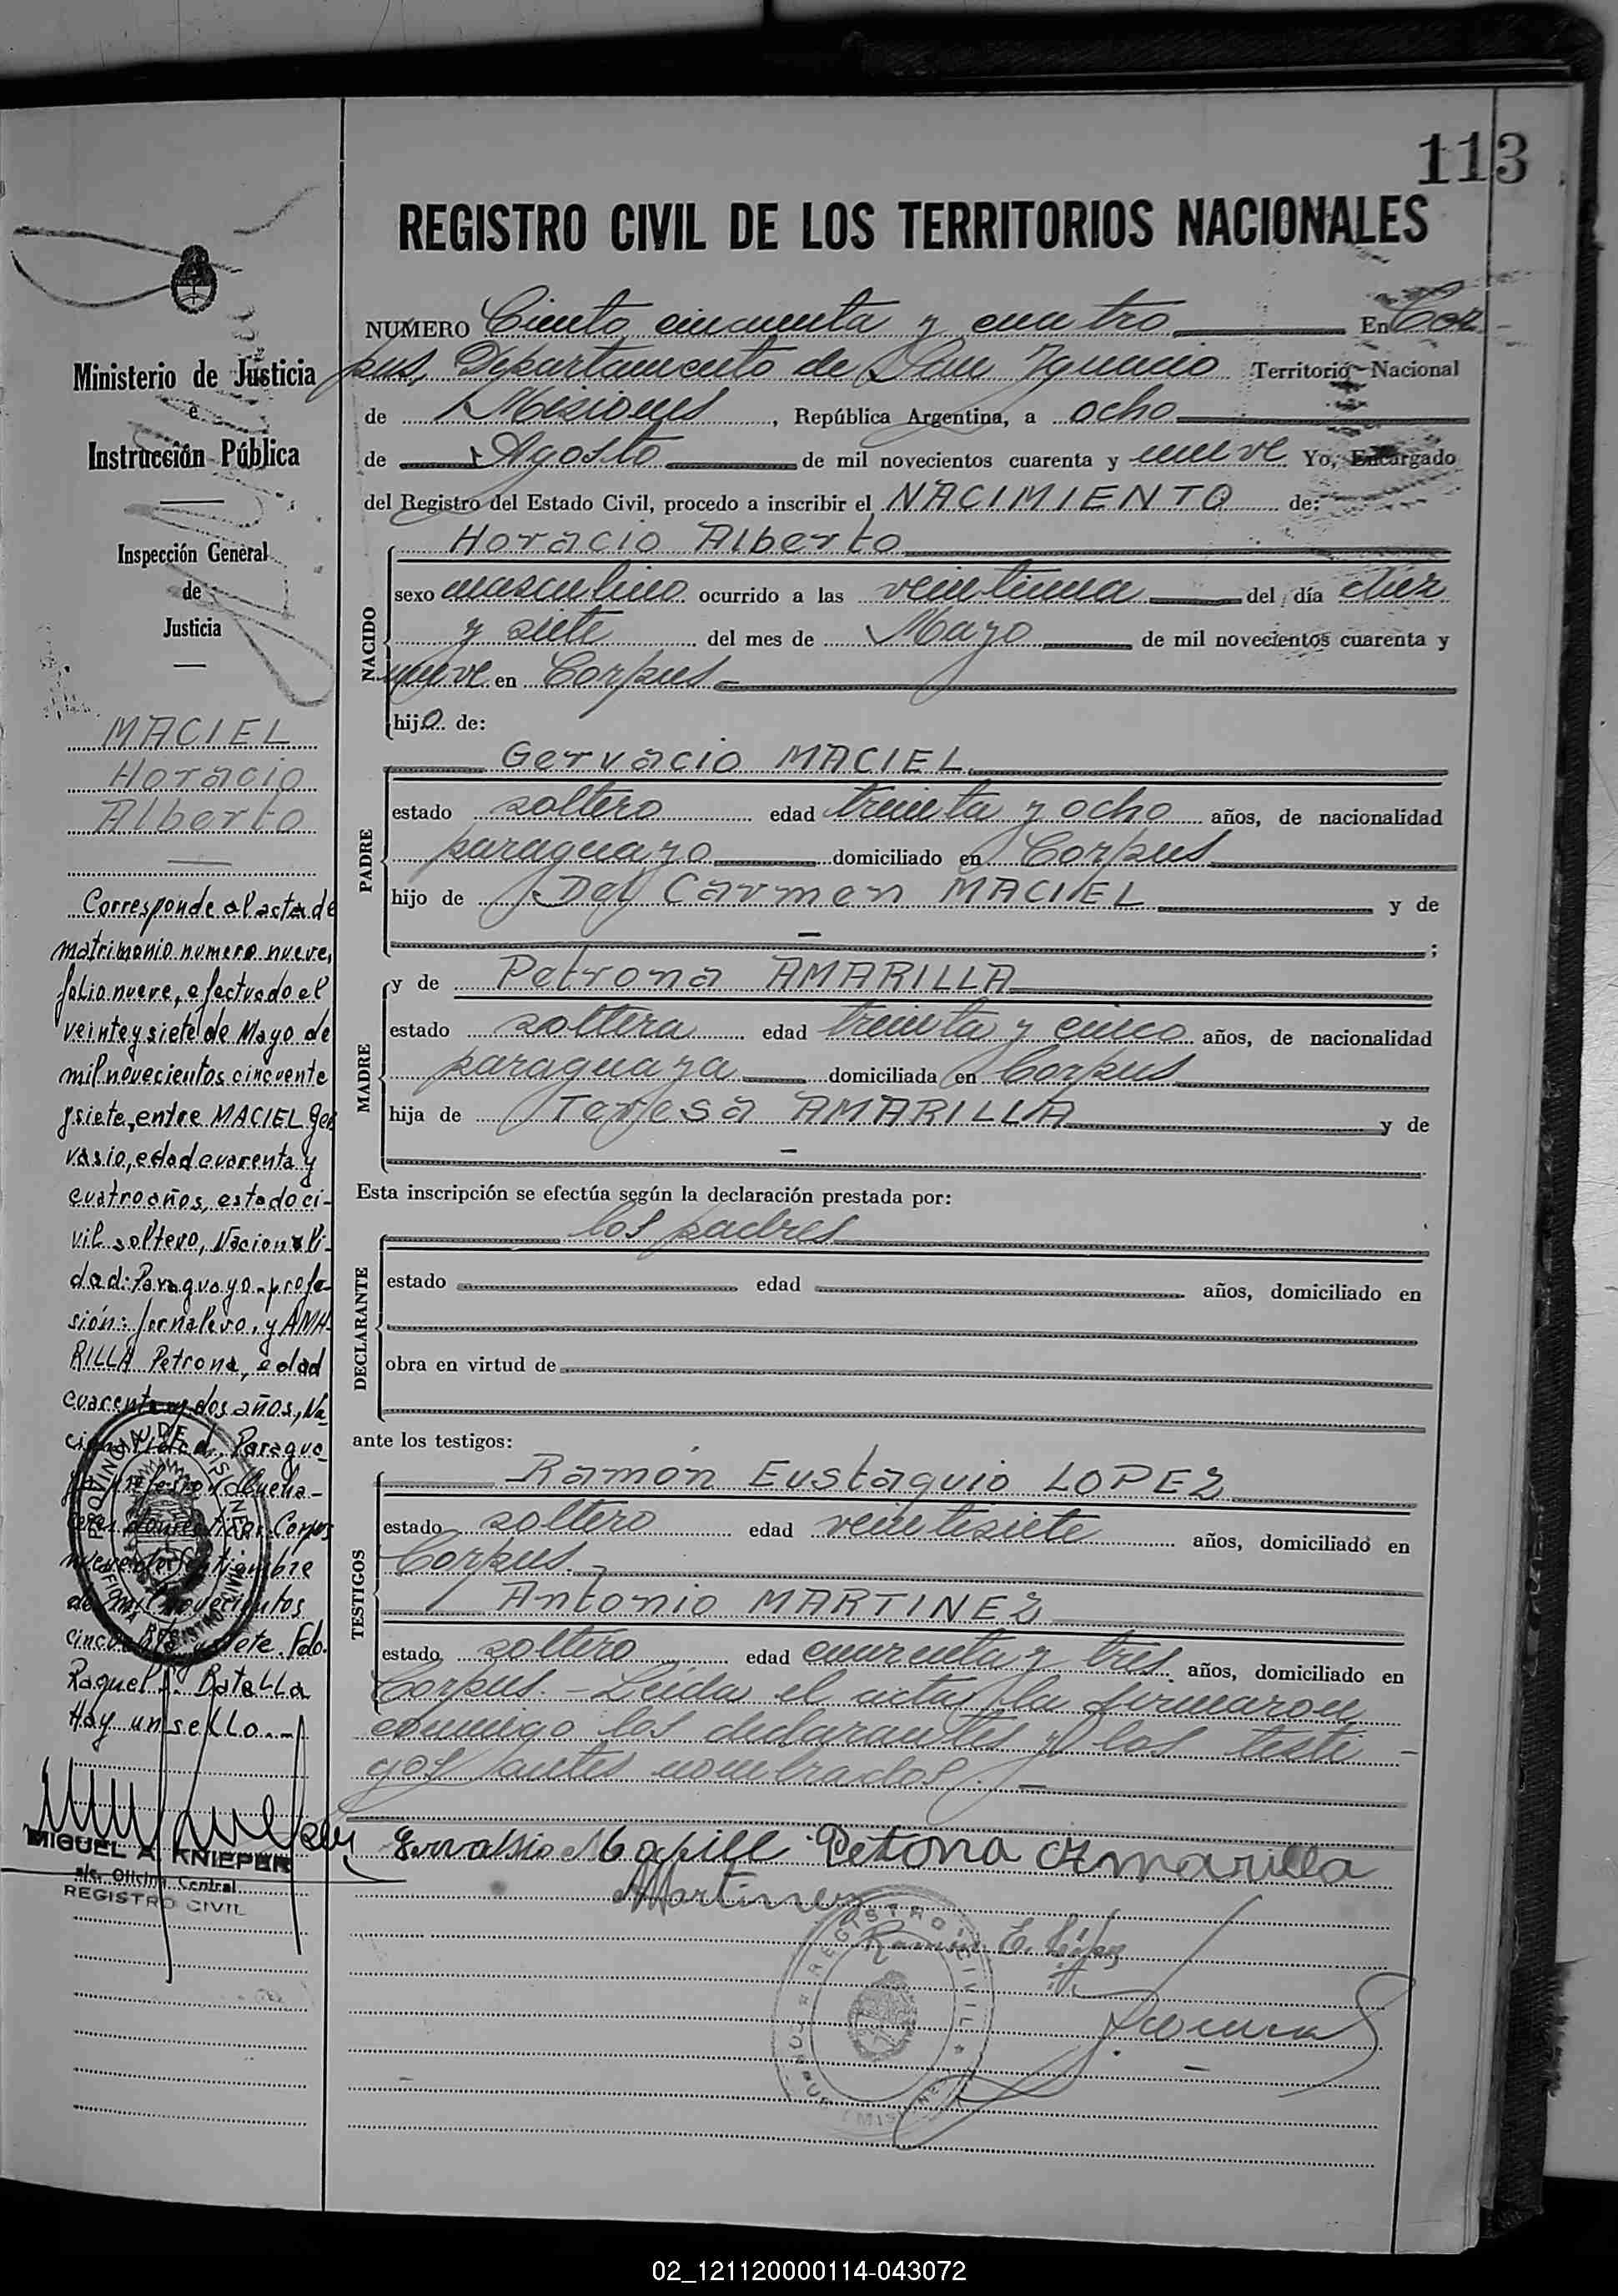 113
REGISTRO CIVIL DE LOS TERRITORIOS NACIONALES
NUMERO Ciento cincuenta y cuatro En Cor
pus, Departamento de San Ignacio Territorio Nacional
de Misiones, República Argentina, a ocho
de Agosto de mil novecientos cuarenta y nueve Yo, Encargado
del Registro del Estado Civil, procedo a inscribir el NACIMIENTO de:
NACIDO
Horacio Alberto
sexo masculino ocurrido a las veintiuna del día diez
y siete del mes de Mayo de mil novecientos cuarenta y
nueve en Corpus
hijo de:
PADRE
Gervacio MACIEL
estado soltero edad treinta y ocho años, de nacionalidad
paraguayo domiciliado en Corpus
hijo de Del Carmen MACIEL y de
— ;
MADRE
y de Petrona AMARILLA
estado soltera edad treinta y cinco años, de nacionalidad
paraguaya domiciliada en Corpus
hija de Teresa AMARILLA y de
—
Esta inscripción se efectúa según la declaración prestada por:
DECLARANTE
los padres
estado edad años, domiciliado en
obra en virtud de
ante los testigos:
TESTIGOS
Ramón Eustaquio LOPEZ
estado soltero edad veintisiete años, domiciliado en
Corpus.
Antonio MARTINEZ
estado soltero edad cuarenta y tres años, domiciliado en
Corpus. – Leída el acta, la firmaron
conmigo los declarantes y los testi-
gos antes nombrados. —
Petrona Amarilla
Martinez
Ramón E. López
REGISTRO CIVIL
Ministerio de Justicia
e
Instrucción Pública
Inspección General
de
Justicia
MACIEL
Horacio
Alberto
Corresponde al acta de
matrimonio numero nueve,
folio nueve, efectuado el
veinte y siete de Mayo de
mil novecientos cincuenta
y siete, entre MACIEL Ger
vasio, edad cuarenta y
cuatro años, estado ci-
vil soltero, Nacionali-
dad: Paraguayo - profe-
sión: Jornalero, y AMA-
RILLA Petrona, edad
cuarenta y dos años, Na-
cionalidad Paragua-
ya profesion
Corpus
nueve de Septiembre
de mil novecientos
cincuenta y siete. Fdo.
Raquel Batalla
Hay un sello.
PROVINCIA DE MISIONES
OFICINA REGISTRO CIVIL
MIGUEL A. KNIEPER
a/c. Oficina Central
REGISTRO CIVIL
02_121120000114-043072